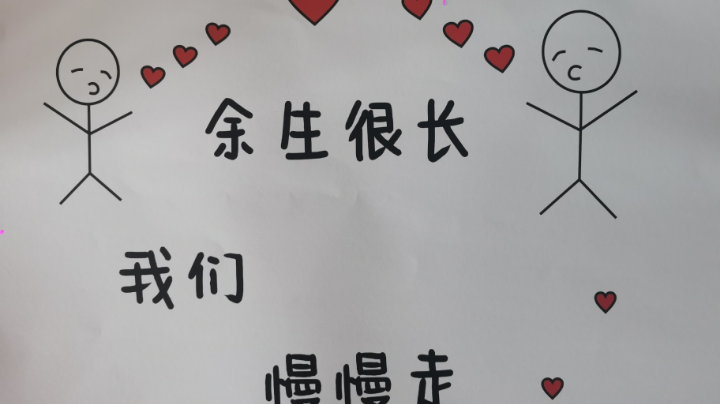 余生很长
我们
慢慢走